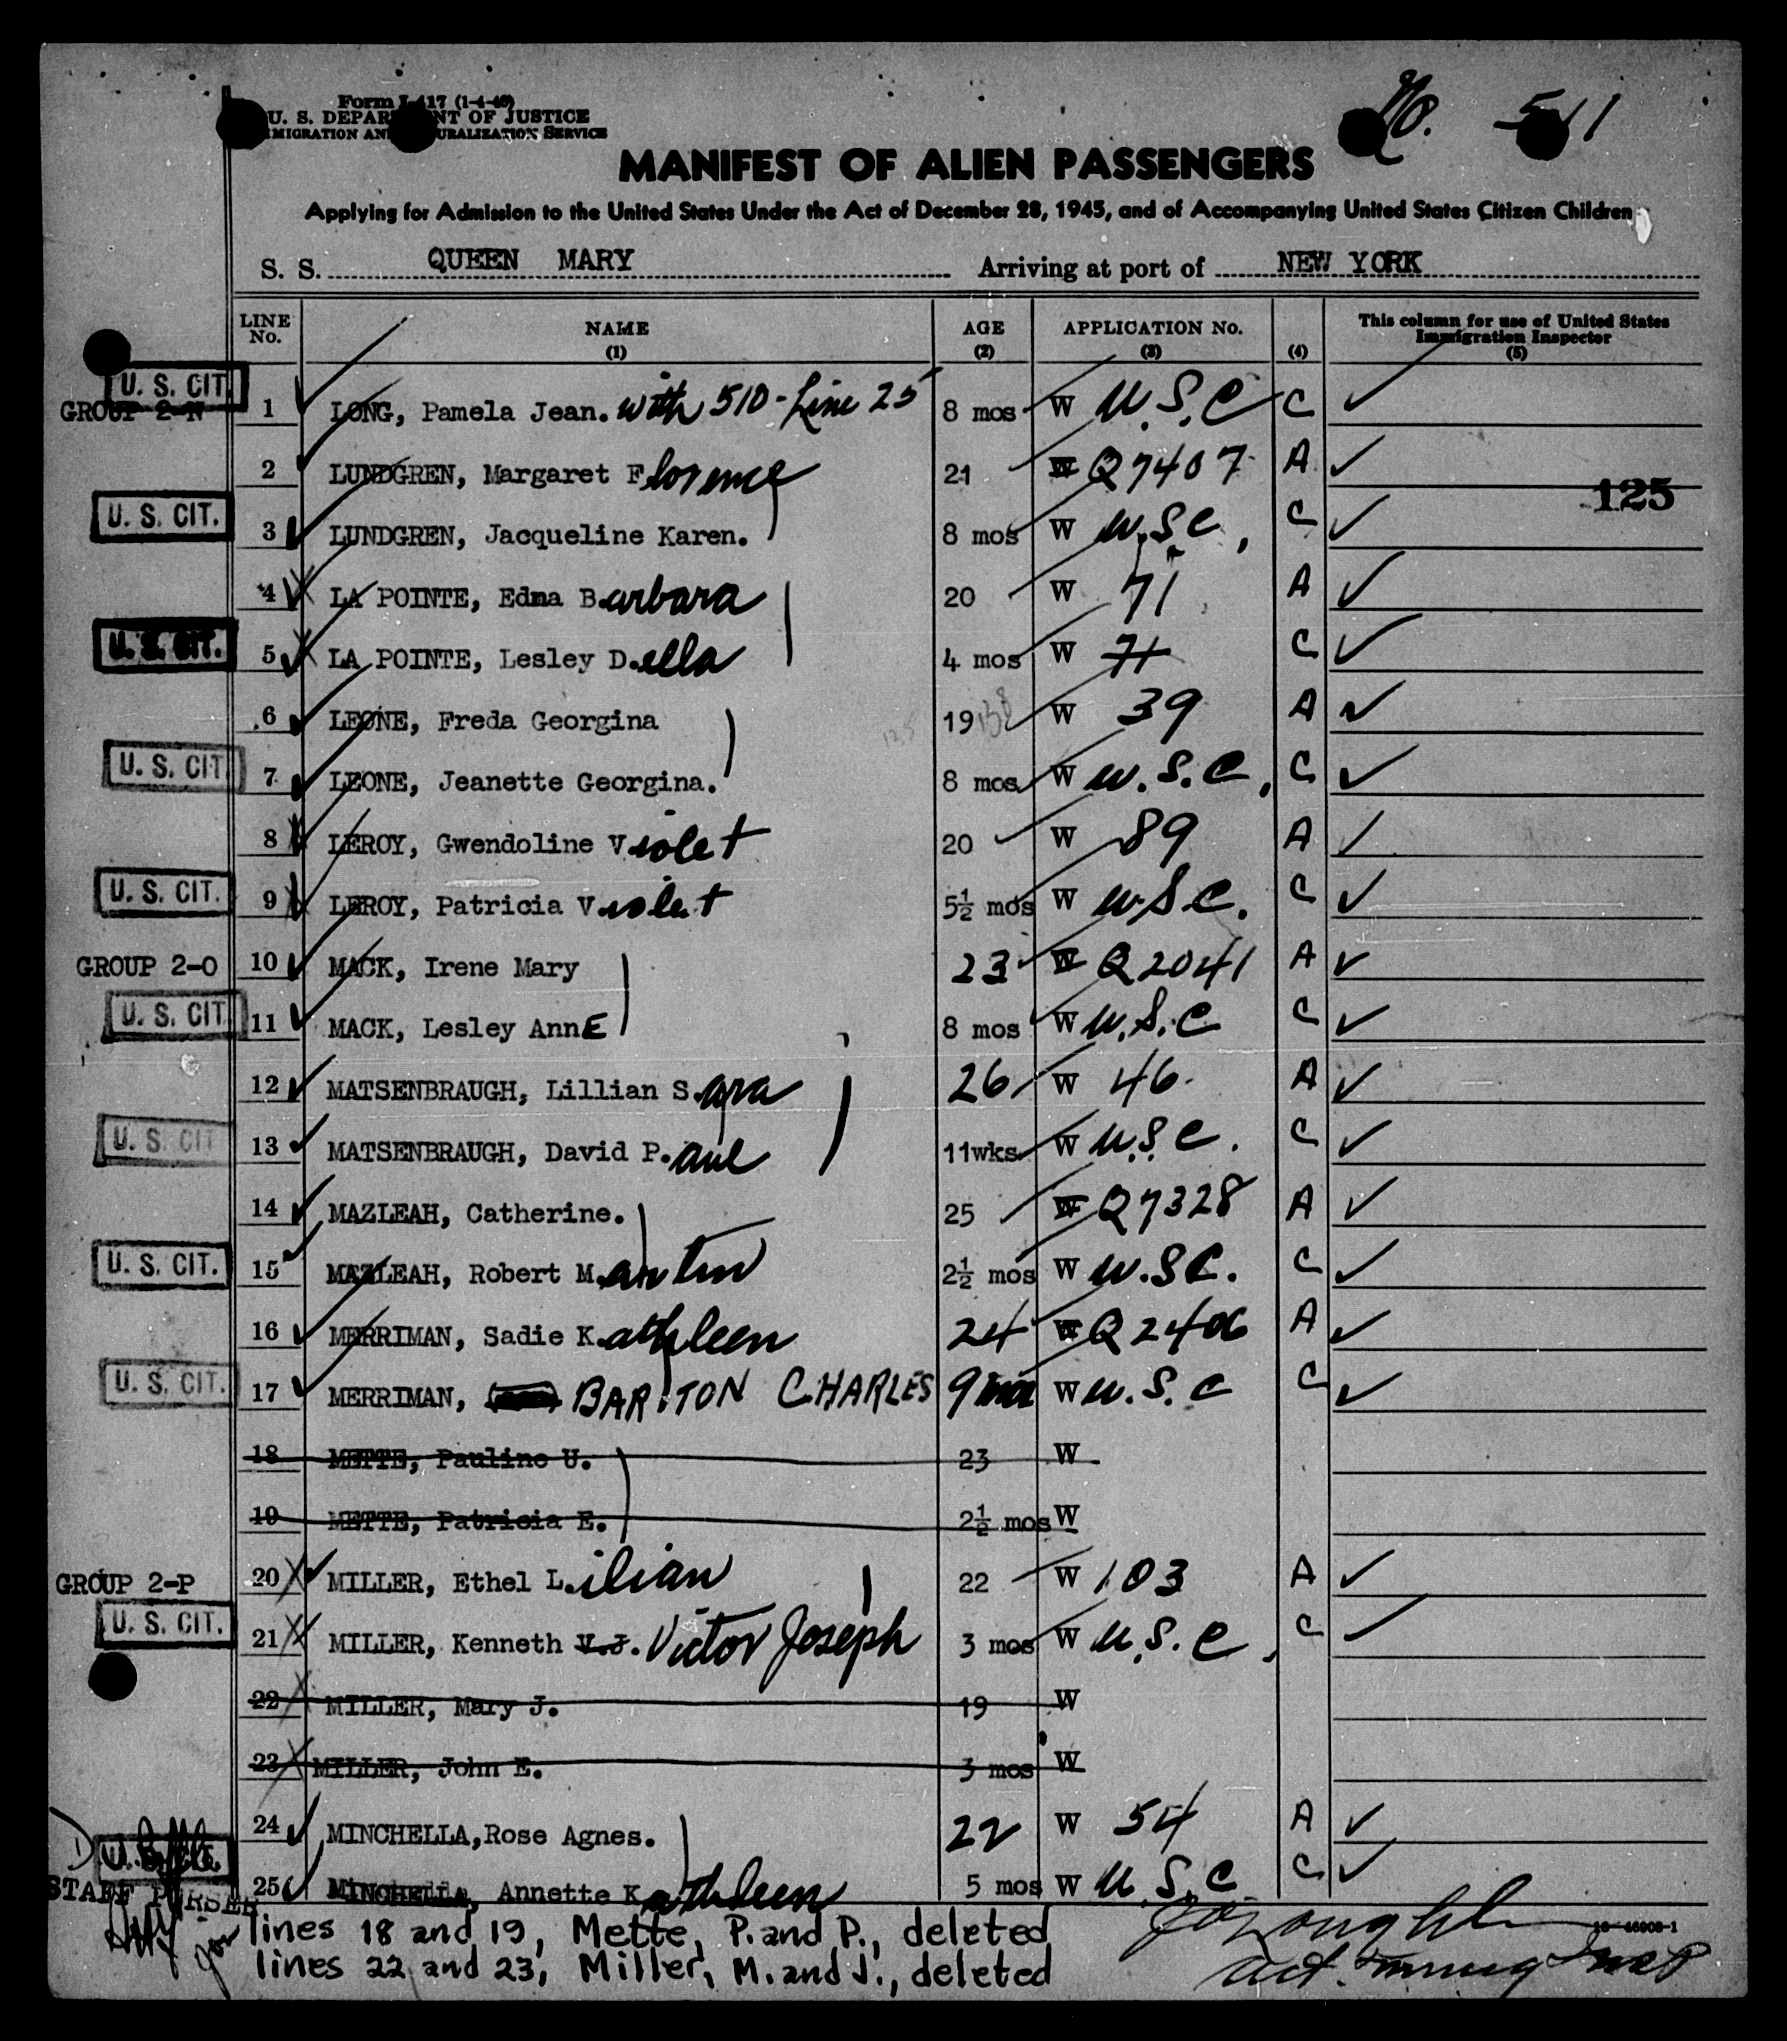 No. 511
Form I-417 (1-4-46)
U. S. DEPARTMENT OF JUSTICE
IMMIGRATION AND NATURALIZATION SERVICE
MANIFEST OF ALIEN PASSENGERS
Applying for Admission to the United States Under the Act of December 28, 1945, and of Accompanying United States Citizen Children
S. S. QUEEN MARY Arriving at port of NEW YORK
LINE No. NAME (1) AGE (2) APPLICATION No. (3) (4) This column for use of United States Immigration Inspector (5)
U. S. CIT.
GROUP 2-N 1 LONG, Pamela Jean. with 510 - Line 25 8 mos W U.S.C C
2 LUNDGREN, Margaret Florence 21 W Q7407 A
125
U. S. CIT. 3 LUNDGREN, Jacqueline Karen. 8 mos W U.S.C. C
4 LA POINTE, Edna Barbara 20 W 71 A
U. S. CIT. 5 LA POINTE, Lesley D.ella 4 mos W 71 C
6 LEONE, Freda Georgina 19 W 39 A
U. S. CIT. 7 LEONE, Jeanette Georgina. 8 mos W U.S.C. C
8 LEROY, Gwendoline Violet 20 W 89 A
U. S. CIT. 9 LEROY, Patricia Violet 5½ mos W U.S.C. C
GROUP 2-O 10 MACK, Irene Mary 23 W Q2041 A
U. S. CIT. 11 MACK, Lesley AnnE 8 mos W U.S.C C
12 MATSENBRAUGH, Lillian S.ara 26 W 46 A
U. S. CIT 13 MATSENBRAUGH, David P.aul 11wks W U.S.C. C
14 MAZLEAH, Catherine. 25 W Q7328 A
U. S. CIT. 15 MAZLEAH, Robert M.artin 2½ mos W U.S.C. C
16 MERRIMAN, Sadie K.athleen 24 W Q2406 A
U. S. CIT. 17 MERRIMAN, BARTON CHARLES 9 mos W U.S.C C
18 METTE, Pauline U. 23 W
19 METTE, Patricia E. 2½ mos W
GROUP 2-P 20 MILLER, Ethel L.ilian 22 W 103 A
U. S. CIT. 21 MILLER, Kenneth V.J. Victor Joseph 3 mos W U.S.C. C
22 MILLER, Mary J. 19 W
23 MILLER, John E. 3 mos W
24 MINCHELLA, Rose Agnes. 22 W 54 A
25 MINCHELLA, Annette K.athleen 5 mos W U.S.C C
STAFF PURSER
lines 18 and 19, Mette, P. and P., deleted
lines 22 and 23, Miller, M. and J., deleted